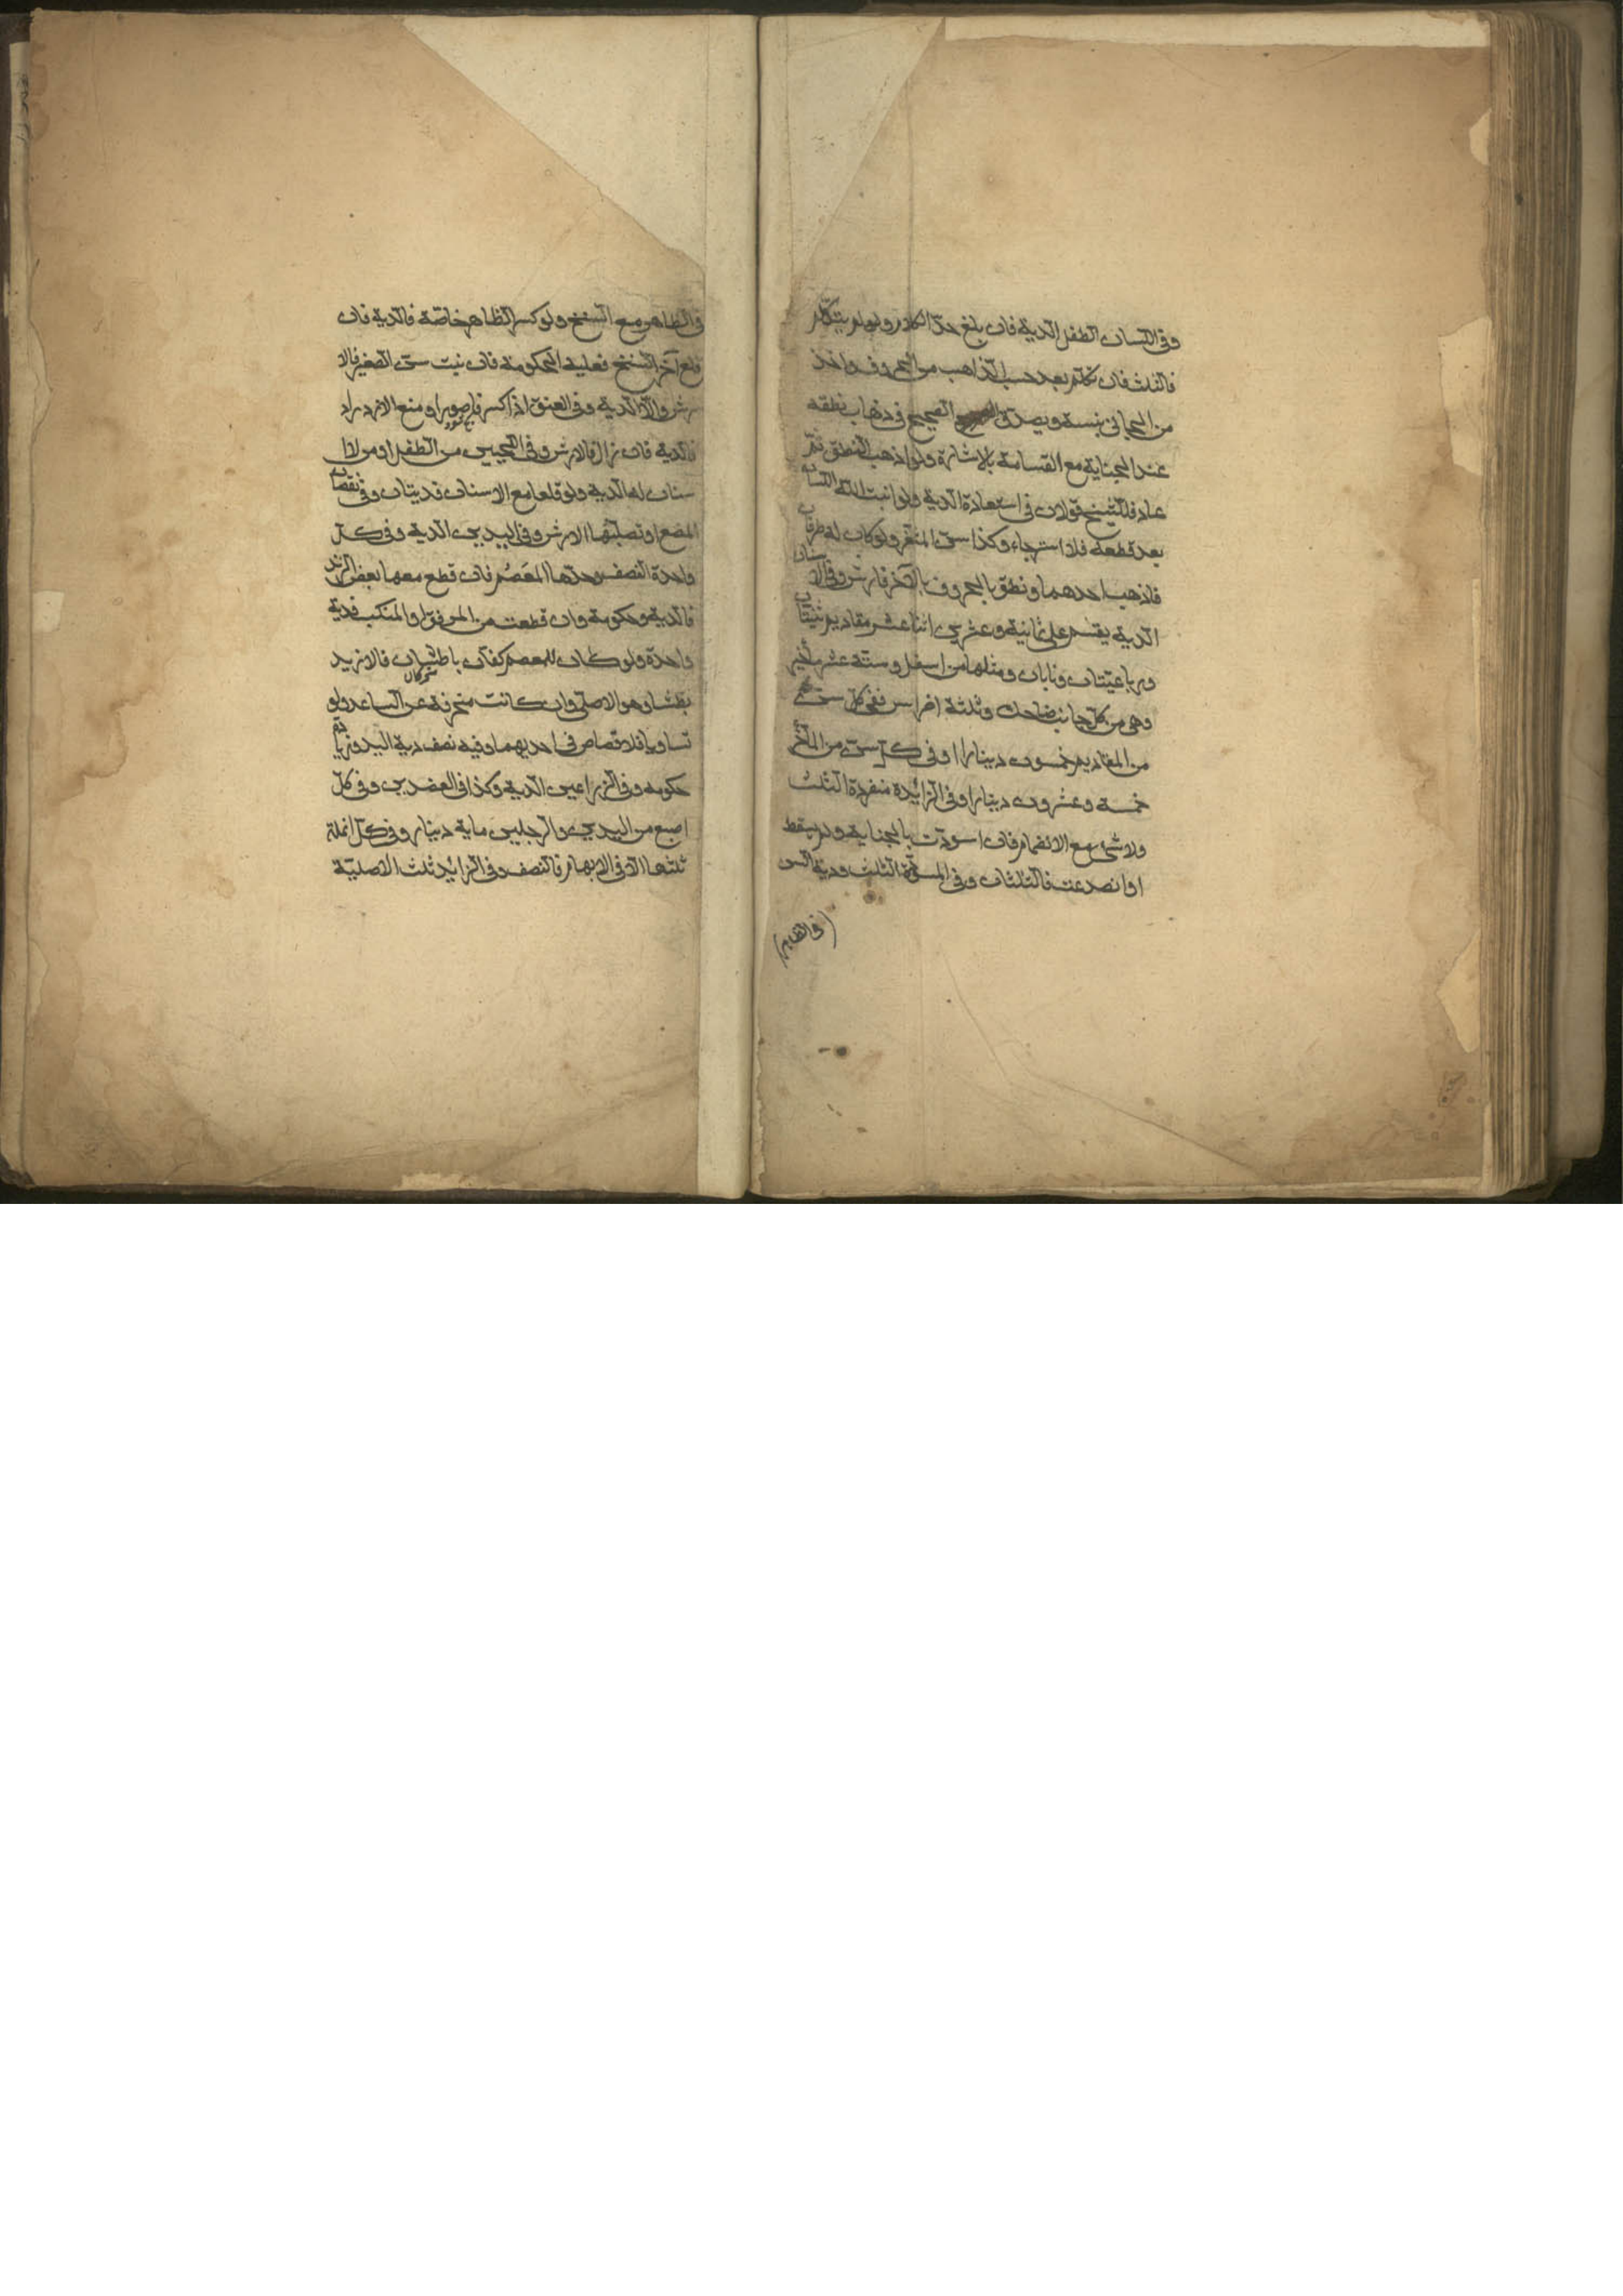 وفى اللسان الطفل الدية فان بلغ حدّ الكلام ولو لم يتكلّم
فالثلث فان تكلم بعد حسب الذاهب من الحروف واخذ
من الجانى بنسبة ويصدق الصحيح فى ذهاب نطقه
عند الجناية مع القسامة بالاشارة ولو اذهب النطق ثمّ
عاد فللشيخ قولان فى استعادة الدية ولو انبت الله اللسان
بعد قطعه فلا استرجاع وكذا سنّ المثغر ولو كان له طرفان
فاذهب احدهما ونطق بالحروف بالآخر فارش وفى الاسنان
الدية يقسم على ثمانية وعشرين اثنا عشر مقاديم ثنيتان
ورباعيّتان ونابان ومثلها من اسفل وستة عشر مأخير
وهى من كلّ جانب ضاحك وثلثة اضراس ففى كلّ سنّ
من المقاديم خمسون دينارا وفى كلّ سنّ من المآخر
خمسة وعشرون دينارا وفى الزائدة منفردة الثلث
ولا شئ مع الانضمام فان اسودّت بالجناية ولم يسقط
او انصدعت فالثلثان وفى المسودّة الثلث ودية السن
(فى الظاهر)
فى الظاهر مع السنخ ولو كسر الظاهر خاصّة فالدية فان
قلع آخر السنخ فعليه الحكومة فان نبت سنّ الصغير فالا
رش والّا الدية وفى العنق اذا كسر فاصور او منع الازدراد
فالدية فان زال فالارش وفى اللحيين من الطفل او من لا ا
سنان له الدية ولو قلعا مع الاسنان فديتان وفى نقصان
المضغ او تصلّبهما الارش وفى اليدين الدية وفى كلّ
واحدة النصف وحدّها المعصم فان قطع معها بعض الزند
فالدية وحكومة وان قطعت من المرفق او المنكب فدية
واحدة ولو كان للمعصم كفّان باطشتان فالازيد
بطشا وهو الاصلى وان كانت منحرفة عن الساعد ولو
تساويا فلا قصاص فى احديهما وفيه نصف دية اليد وزيادة
حكومه وفى الزراعين الدية وكذا فى العضدين وفى كلّ
اصبع من اليدين والرجلين ماية دينار وفى كلّ انملة
ثلثها الّا فى الابهام فالنصف وفى الزايد ثلث الاصليّة